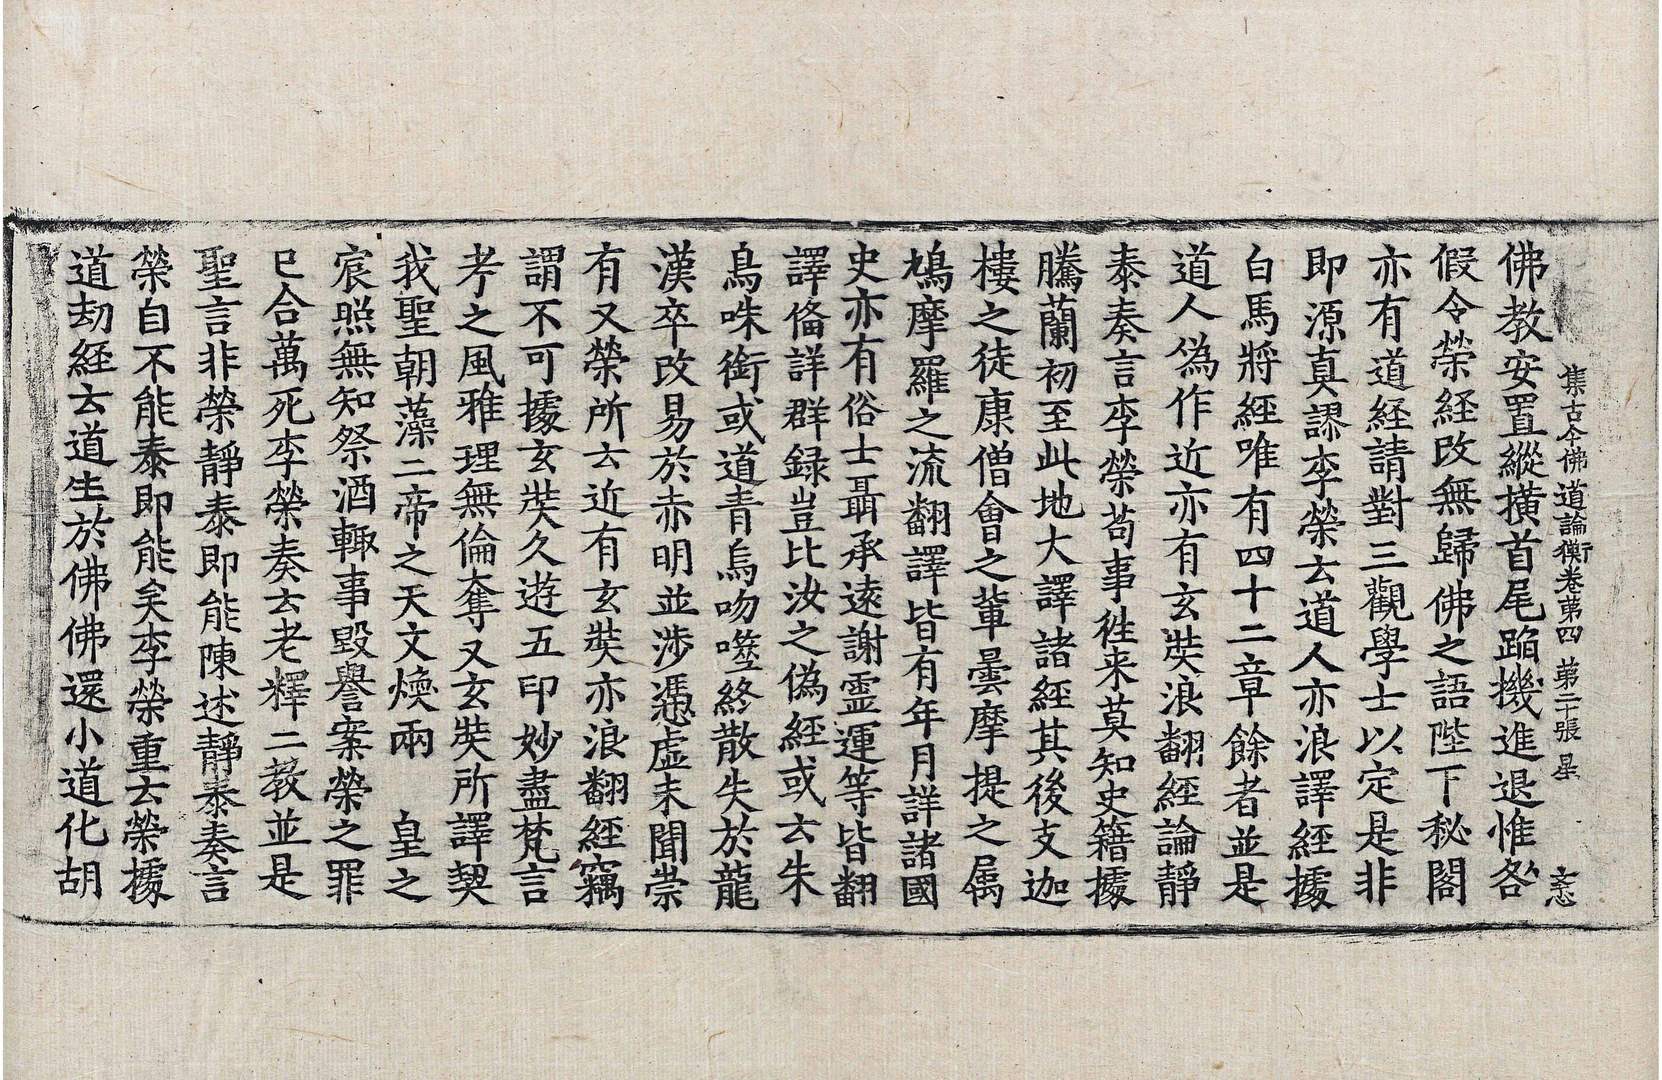 集古今佛道論衡卷第四 第二十張 星
佛教安置縱橫首尾䧟機進退惟咎
假令榮經改無歸佛之語陛下秘閣
亦有道經請對三觀學士以定是非
即源真謬李榮云道人亦浪譯經據
白馬將經唯有四十二章餘者並是
道人偽作近亦有玄奘浪翻經論靜
泰奏言李榮苟事往来莫知史籍據
騰蘭初至此地大譯諸經其後支迦
樓之徒康僧會之軰曇摩提之属
鳩摩羅之流翻譯皆有年月詳諸國
史亦有俗士聶承遠謝霊運等皆翻
譯俻詳群録豈比汝之偽經或云朱
鳥咮銜或道青烏吻噬終散失於龍
漢卒改易於赤明並渉憑虚未聞崇
有又榮所云近有玄奘亦浪翻經竊
謂不可據玄奘久遊五印妙盡梵言
考之風雅理無倫奪又玄奘所譯契
我聖朝藻二帝之天文煥兩 皇之
宸照無知祭酒輙事毀譽案榮之罪
已合萬死李榮奏云老釋二教並是
聖言非榮靜泰即能陳述靜泰奏言
榮自不能泰即能矣李榮重云榮據
道劫經云道生於佛佛還小道化胡